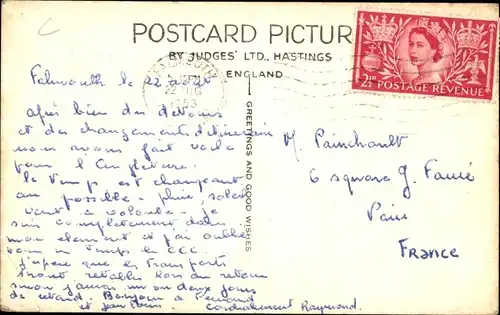 POSTCARD PICTUR
BY JUDGES' LTD., HASTINGS
ENGLAND
GREETINGS AND GOOD WISHES
2½D POSTAGE REVENUE
22 AUG
1953
Falmouth le 22 août
Après bien des détours
et des changements d'itinéraire
nous avons fait voile
pour l'Angleterre.
le temps est changeant
au possible - pluie, soleil
vent à volonté - je
suis complètement dans
mon élément et j'ai oublié
le CCC.
J'espère que les transports
seront rétablis lors du retour
sinon j'aurai un ou deux jours
de retard. Bonjour à
et Cordialement Raymond.
M. Painchault
6 square G. Fauré
Paris
France